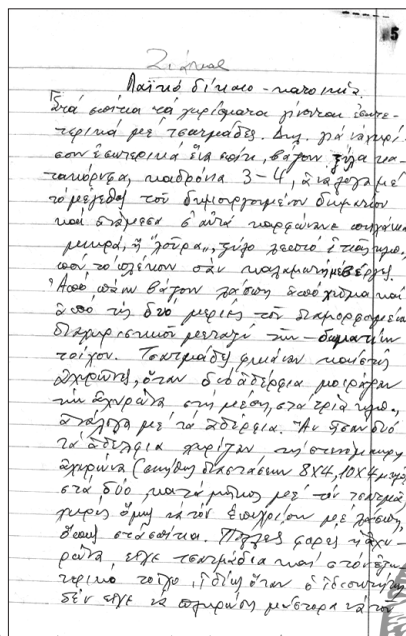 5
Σιάτιστα
Λαϊκό δίκαιο - κατοικία.
Στά σπίτια τά χωρίσματα γίνονται ἐσωτε-
ρικά μέ τσατμάδες. Δηλ. γιά νά χωρί-
σουν ἐσωτερικά ἕνα σπίτι, βάζουν ξύλα κα-
τακόρυφα, καδρόνια 3-4, ἀνάλογα μέ
τό μέγεθος τοῦ δημιουργουμένου δωματίου
καί ἀνάμεσα σ' αὐτά καρφώνανε
μικρά, ἤ "λοῦρα", ξύλο λεπτό
πού τό πλέκουν σάν καλαμωτή μέ βέργες.
Ἀπό πάνω βάζουν λάσπη ἀπό χῶμα καί
ἀπό τίς δυό μεριές τοῦ
διαχωριστικοῦ μεταξύ τῶν δωματίων
τοίχου. Τσατμάδες φτιάχναν καί στίς
ἀχυρῶνες, ὅταν δυό ἀδέρφια μοιράζαν
τήν ἀχυρώνα στή μέση, στά τρία
ἀνάλογα μέ τά ἀδέρφια. Ἄν ἦσαν δυό
τά ἀδέλφια χωρίζαν τή στενόμακρη
ἀχυρώνα (συνήθως διαστάσεων 8Χ4, 10Χ4 μέτρα)
στά δυό, κατά μῆκος μέ τόν τσατμά,
χωρίς ὅμως νά τόν ἐπιχρίουν μέ λάσπη,
ὅπως στά σπίτια. Πολλές φορές ἡ ἀχυ-
ρώνα, εἶχε τσατμάδια καί στόν ἐξω-
τερικό τοῖχο, ἰδίως ὅταν ὁ ἰδιοκτήτης
δέν εἶχε νά πληρώση μάστορα νά τόν